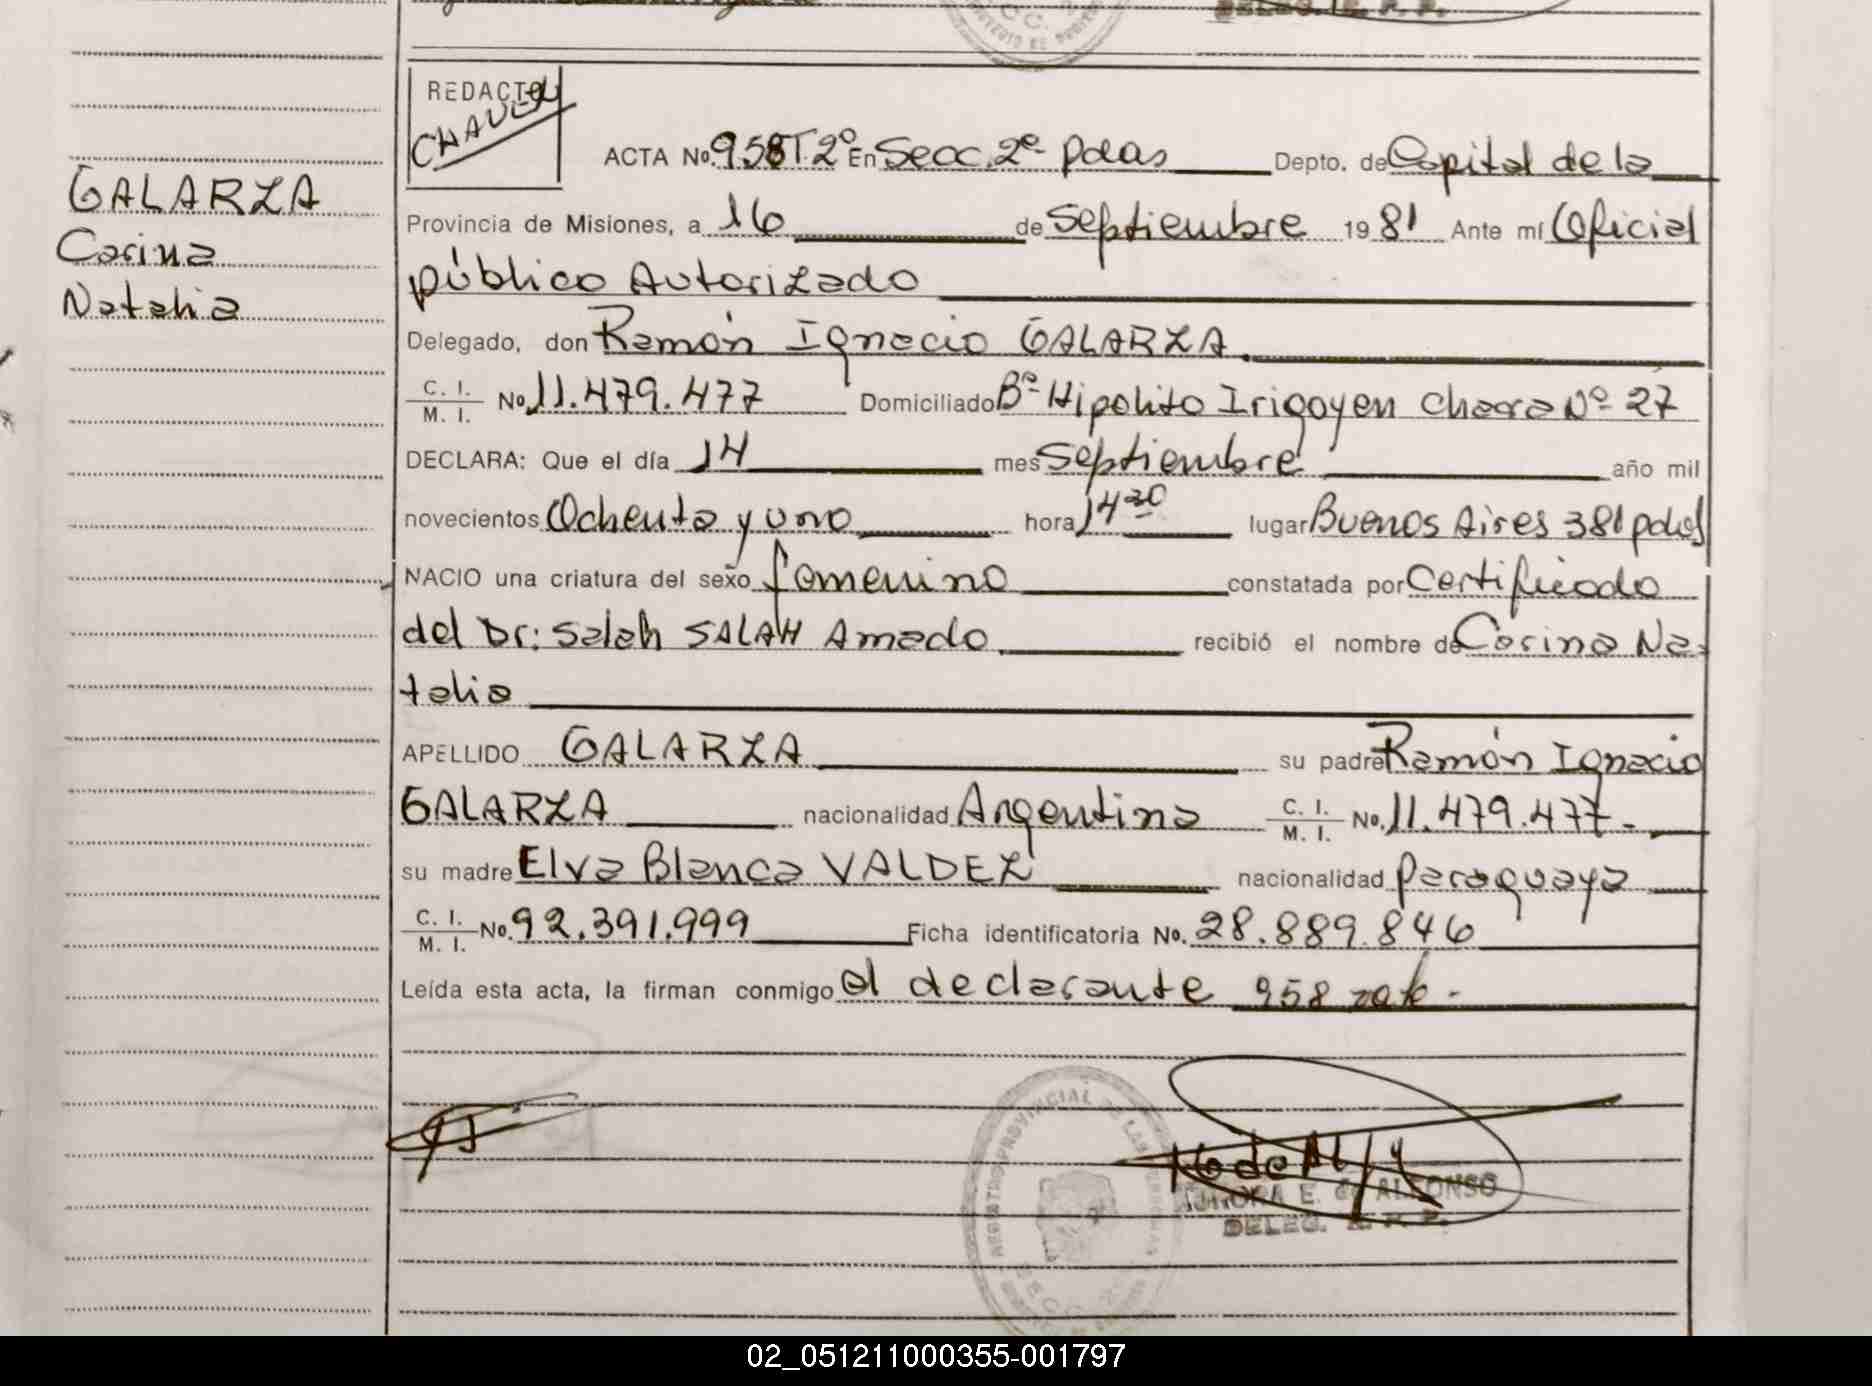 DELEG. R. P. P.
REDACTO
CHAVEZ
ACTA No. 958 T. 2º En Secc. 2ª Pdas Depto. de Capital de la
GALARZA
Carina
Natalia
Provincia de Misiones, a 16 de Septiembre 1981 Ante mí Oficial
público Autorizado
Delegado, don Ramón Ignacio GALARZA
C. I.
M. I. No. 11.479.477 Domiciliado Bº Hipolito Irigoyen Chacra Nº 27
DECLARA: Que el día 14 mes Septiembre año mil
novecientos Ochenta y uno hora 14 30 lugar Buenos Aires 381 pdas
NACIO una criatura del sexo femenino constatada por Certificado
del Dr: Salah SALAH Amado recibió el nombre de Carina Na-
talia
APELLIDO GALARZA su padre Ramón Ignacio
GALARZA nacionalidad Argentina C. I.
M. I. No. 11.479.477.-
su madre Elva Blanca VALDEZ nacionalidad paraguaya
C. I.
M. I. No. 92.391.999 Ficha identificatoria No. 28.889.846
Leída esta acta, la firman conmigo el declarante 958 vale.-
REGISTRO PROVINCIAL DE LAS PERSONAS
E. de ALFONSO
DELEG. R. P. P.
02_051211000355-001797